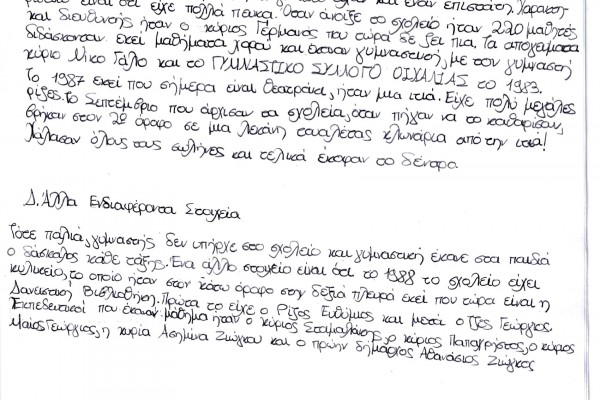 είναι ότι είχε πολλά πεύκα. Όταν άνοιξε το σχολείο ήταν 220 μαθητές
και διευθυντής ήταν ο κύριος Γερμανός που τώρα δε ζει πια. Τα απογεύματα
διδάσκονταν εκεί μαθήματα χορού και έκαναν γυμναστική, με τον γυμναστή
κύριο Νίκο Γάλο και το ΓΥΜΝΑΣΤΙΚΟ ΣΥΛΛΟΓΟ ΟΙΧΑΛΙΑΣ το 1983.
Το 1987 εκεί που σήμερα είναι θεατράκι, ήταν μια ιτιά. Είχε πολύ μεγάλες
ρίζες. Το Σεπτέμβριο που άρχισαν τα σχολεία, όταν πήγαν να το καθαρίσουν,
βρήκαν στον 2ο όροφο σε μια λεκάνη τουαλέτας κλωνάρια από την ιτιά!
Χάλασαν όλους τους σωλήνες και τελικά έκοψαν το δέντρο.
Δ. Άλλα Ενδιαφέροντα Στοιχεία
Τότε παλιά, γυμναστής δεν υπήρχε στο σχολείο και γυμναστική έκανε στα παιδιά
ο δάσκαλος κάθε τάξης. Ένα άλλο στοιχείο είναι ότι το 1988 το σχολείο είχε
κυλικείο, το οποίο ήταν στον κάτω όροφο στη δεξιά πλευρά εκεί που τώρα είναι η
Δανειστική Βιβλιοθήκη. Πρώτα το είχε ο Ρίζος Ευθύμιος και μετά ο Τζος Γεώργιος.
Εκπαιδευτικοί που έκαναν μάθημα ήταν ο κύριος Σταμολάκης, ο κύριος Παπαχρήστος, ο κύριος
Μαΐος Γεώργιος, η κυρία Ασημίνα Ζιώγκου και ο πρώην δήμαρχος Αθανάσιος Ζιώγκος